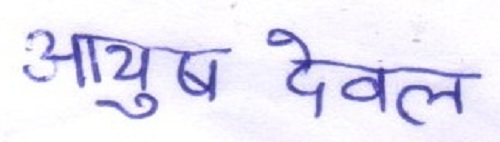 आयुष देवल